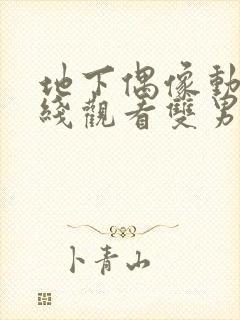 地下偶像動
綫觀看雙男
卜青山